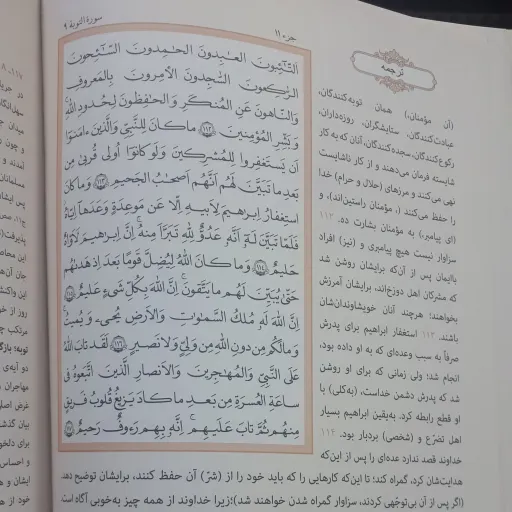 سورة التوبة ۹
جزء ۱۱
ٱلتَّٰٓئِبُونَ ٱلْعَٰبِدُونَ ٱلْحَٰمِدُونَ ٱلسَّٰٓئِحُونَ
ٱلرَّٰكِعُونَ ٱلسَّٰجِدُونَ ٱلْءَامِرُونَ بِٱلْمَعْرُوفِ
وَٱلنَّاهُونَ عَنِ ٱلْمُنكَرِ وَٱلْحَٰفِظُونَ لِحُدُودِ ٱللَّهِ
وَبَشِّرِ ٱلْمُؤْمِنِينَ ۱۱۲ مَا كَانَ لِلنَّبِيِّ وَٱلَّذِينَ ءَامَنُوٓا۟
أَن يَسْتَغْفِرُوا۟ لِلْمُشْرِكِينَ وَلَوْ كَانُوٓا۟ أُو۟لِى قُرْبَىٰ مِنۢ
بَعْدِ مَا تَبَيَّنَ لَهُمْ أَنَّهُمْ أَصْحَٰبُ ٱلْجَحِيمِ ۱۱۳ وَمَا كَانَ
ٱسْتِغْفَارُ إِبْرَٰهِيمَ لِأَبِيهِ إِلَّا عَن مَّوْعِدَةٍ وَعَدَهَآ إِيَّاهُ
فَلَمَّا تَبَيَّنَ لَهُۥٓ أَنَّهُۥ عَدُوٌّ لِّلَّهِ تَبَرَّأَ مِنْهُ إِنَّ إِبْرَٰهِيمَ لَأَوَّٰهٌ
حَلِيمٌ ۱۱۴ وَمَا كَانَ ٱللَّهُ لِيُضِلَّ قَوْمًۢا بَعْدَ إِذْ هَدَىٰهُمْ
حَتَّىٰ يُبَيِّنَ لَهُم مَّا يَتَّقُونَ إِنَّ ٱللَّهَ بِكُلِّ شَىْءٍ عَلِيمٌ ۱۱۵
إِنَّ ٱللَّهَ لَهُۥ مُلْكُ ٱلسَّمَٰوَٰتِ وَٱلْأَرْضِ يُحْىِۦ وَيُمِيتُ
وَمَا لَكُم مِّن دُونِ ٱللَّهِ مِن وَلِىٍّ وَلَا نَصِيرٍ ۱۱۶ لَّقَد تَّابَ ٱللَّهُ
عَلَى ٱلنَّبِىِّ وَٱلْمُهَٰجِرِينَ وَٱلْأَنصَارِ ٱلَّذِينَ ٱتَّبَعُوهُ فِى
سَاعَةِ ٱلْعُسْرَةِ مِنۢ بَعْدِ مَا كَادَ يَزِيغُ قُلُوبُ فَرِيقٍ
مِّنْهُمْ ثُمَّ تَابَ عَلَيْهِمْ إِنَّهُۥ بِهِمْ رَءُوفٌ رَّحِيمٌ ۱۱۷
ترجمه
(آن مؤمنان،) همان توبه‌کنندگان،
عبادت‌کنندگان، ستایشگران، روزه‌داران،
رکوع‌کنندگان، سجده‌کنندگان، آنان که به کار
شایسته فرمان می‌دهند و از کار ناشایست
نهی می‌کنند و مرزهای (حلال و حرام) خدا
را حفظ می‌کنند (، مؤمنان راستین‌اند)، و
(ای پیامبر،) به مؤمنان بشارت ده. ۱۱۲
سزاوار نیست هیچ پیامبری و (نیز) افراد
باایمان پس از آن‌که برایشان روشن شد
که مشرکان اهل دوزخ‌اند، برایشان آمرزش
بخواهند؛ هرچند آنان خویشاوندان‌شان
باشند. ۱۱۳ استغفار ابراهیم برای پدرش
صرفاً به سبب وعده‌ای که به او داده بود،
انجام شد؛ ولی زمانی که برای او روشن
شد که پدرش دشمن خداست، (به‌کلی) با
او قطع رابطه کرد. به‌یقین ابراهیم بسیار
اهل تضرّع و (شخصی) بردبار بود. ۱۱۴
خداوند قصد ندارد عده‌ای را پس از این‌که
هدایت‌شان کرد، گمراه کند؛ تا این‌که کارهایی را که باید خود را از (شرّ) آن حفظ کنند، برایشان توضیح دهد
(اگر پس از آن بی‌توجّهی کردند، سزاوار گمراه شدن خواهند شد)؛ زیرا خداوند از همه چیز به‌خوبی آگاه است.